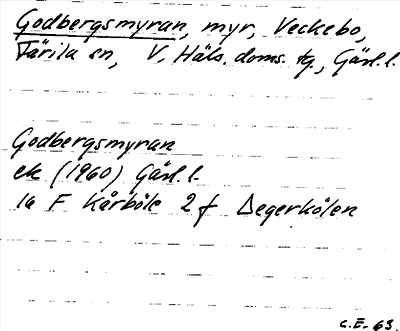 Godbergsmyran, myr, Veckebo,
Färila sn, V. Häls. doms. tg., Gävl. l.
Godbergsmyran
ek (1960) Gävl. l.
16 F Kårböle 2 f Degerkölen
C.E. 63.